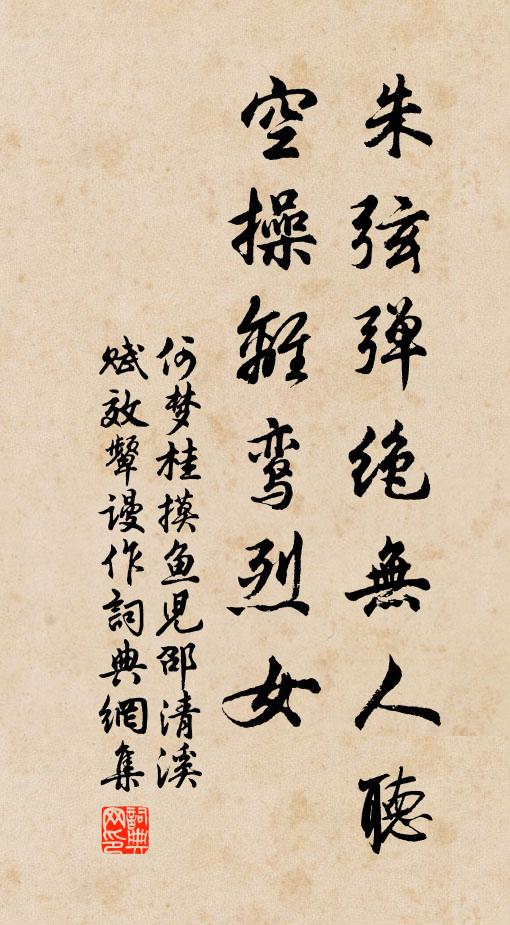 朱弦弹绝無人聽
空操離鸾烈女
何梦桂摸鱼児邵清溪
赋效颦谩作詞典網集
詞典网印